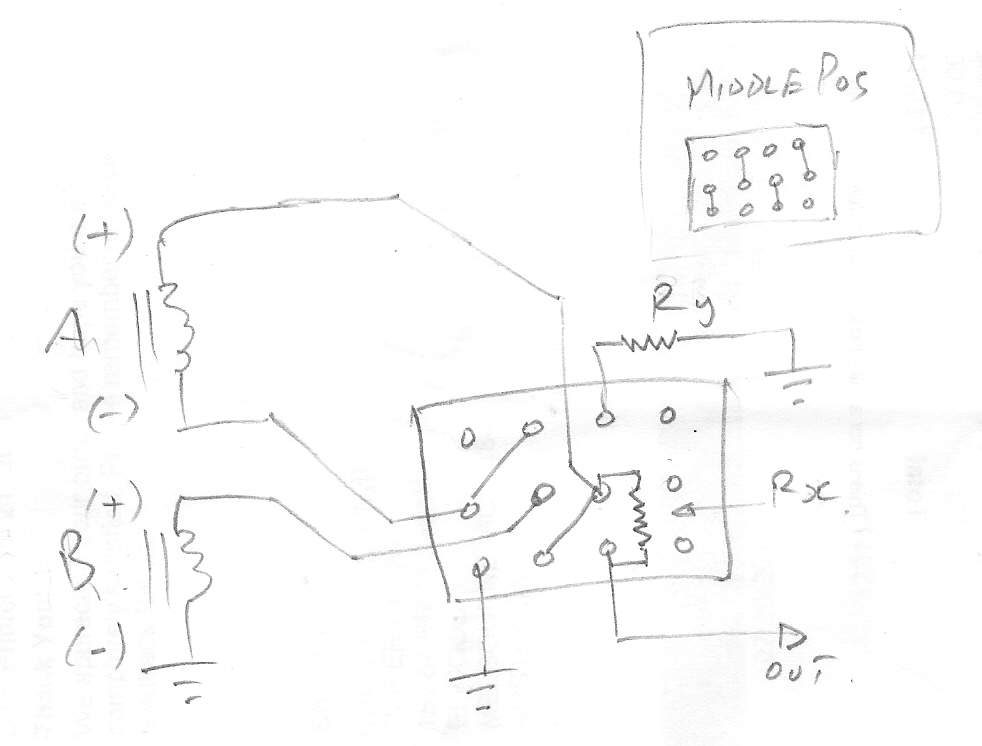 MIDDLE POS
(+)
Ry
A
(-)
(+)
Rx
B
(-)
OUT